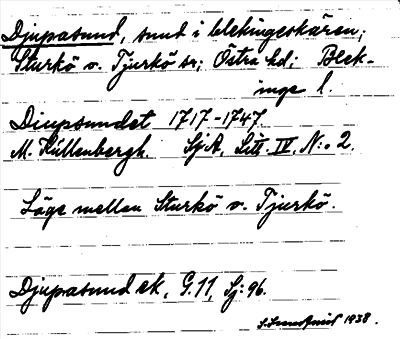 Djupasund, sund i blekingeskären;
Sturkö o. Tjurkö sn; Östra hd; Blek-
inge l.
Diupsundet 1717-1747.
M. Küllenbergh. SjA, Litt. IV, N:o 2.
Läge mellan Sturkö o. Tjurkö.
Djupasund ek, G.11, Sj:96.
1938.